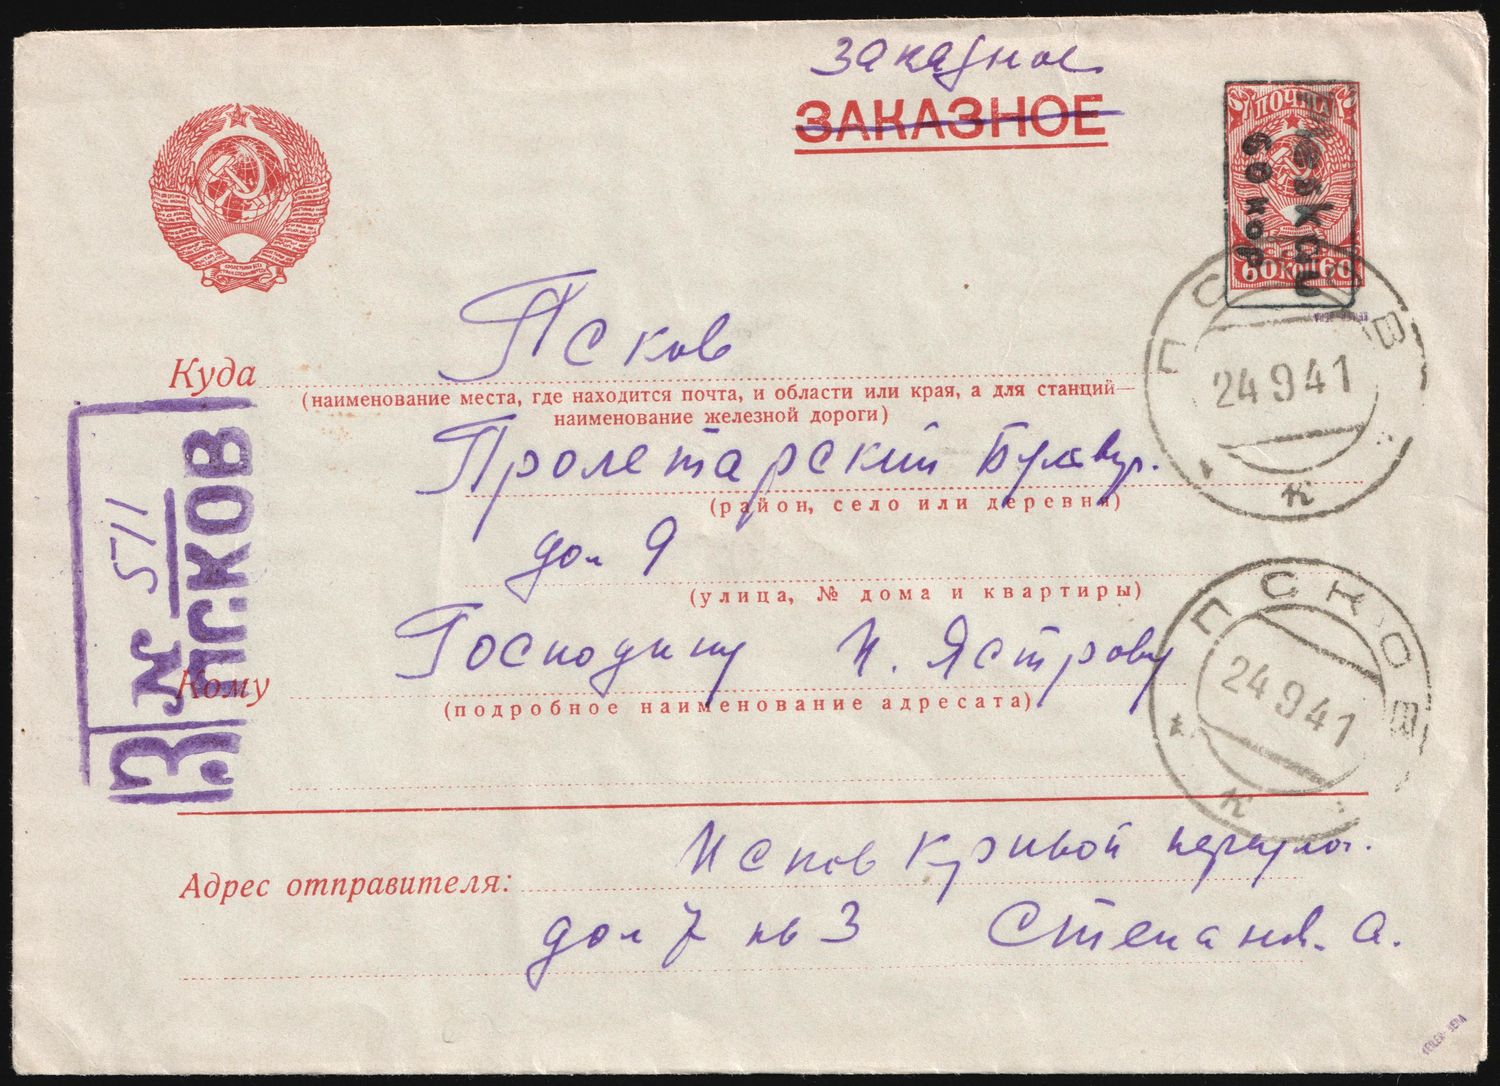 заказное
ЗАКАЗНОЕ
ПОЧТА
60 коп 60
Плескау
60 коп
Куда Псков
(наименование места, где находится почта, и области или края, а для станций—
наименование железной дороги)
Пролетарский Бульвар.
(район, село или деревня)
дом 9
(улица, № дома и квартиры)
Кому Господину И. Ястрову
(подробное наименование адресата)
З ПСКОВ
№ 511
ПСКОВ
24 9 41
к
ПСКОВ
24 9 41
к
Адрес отправителя: Псков Кривой переулок.
дом 7 кв 3 Степанов. А.